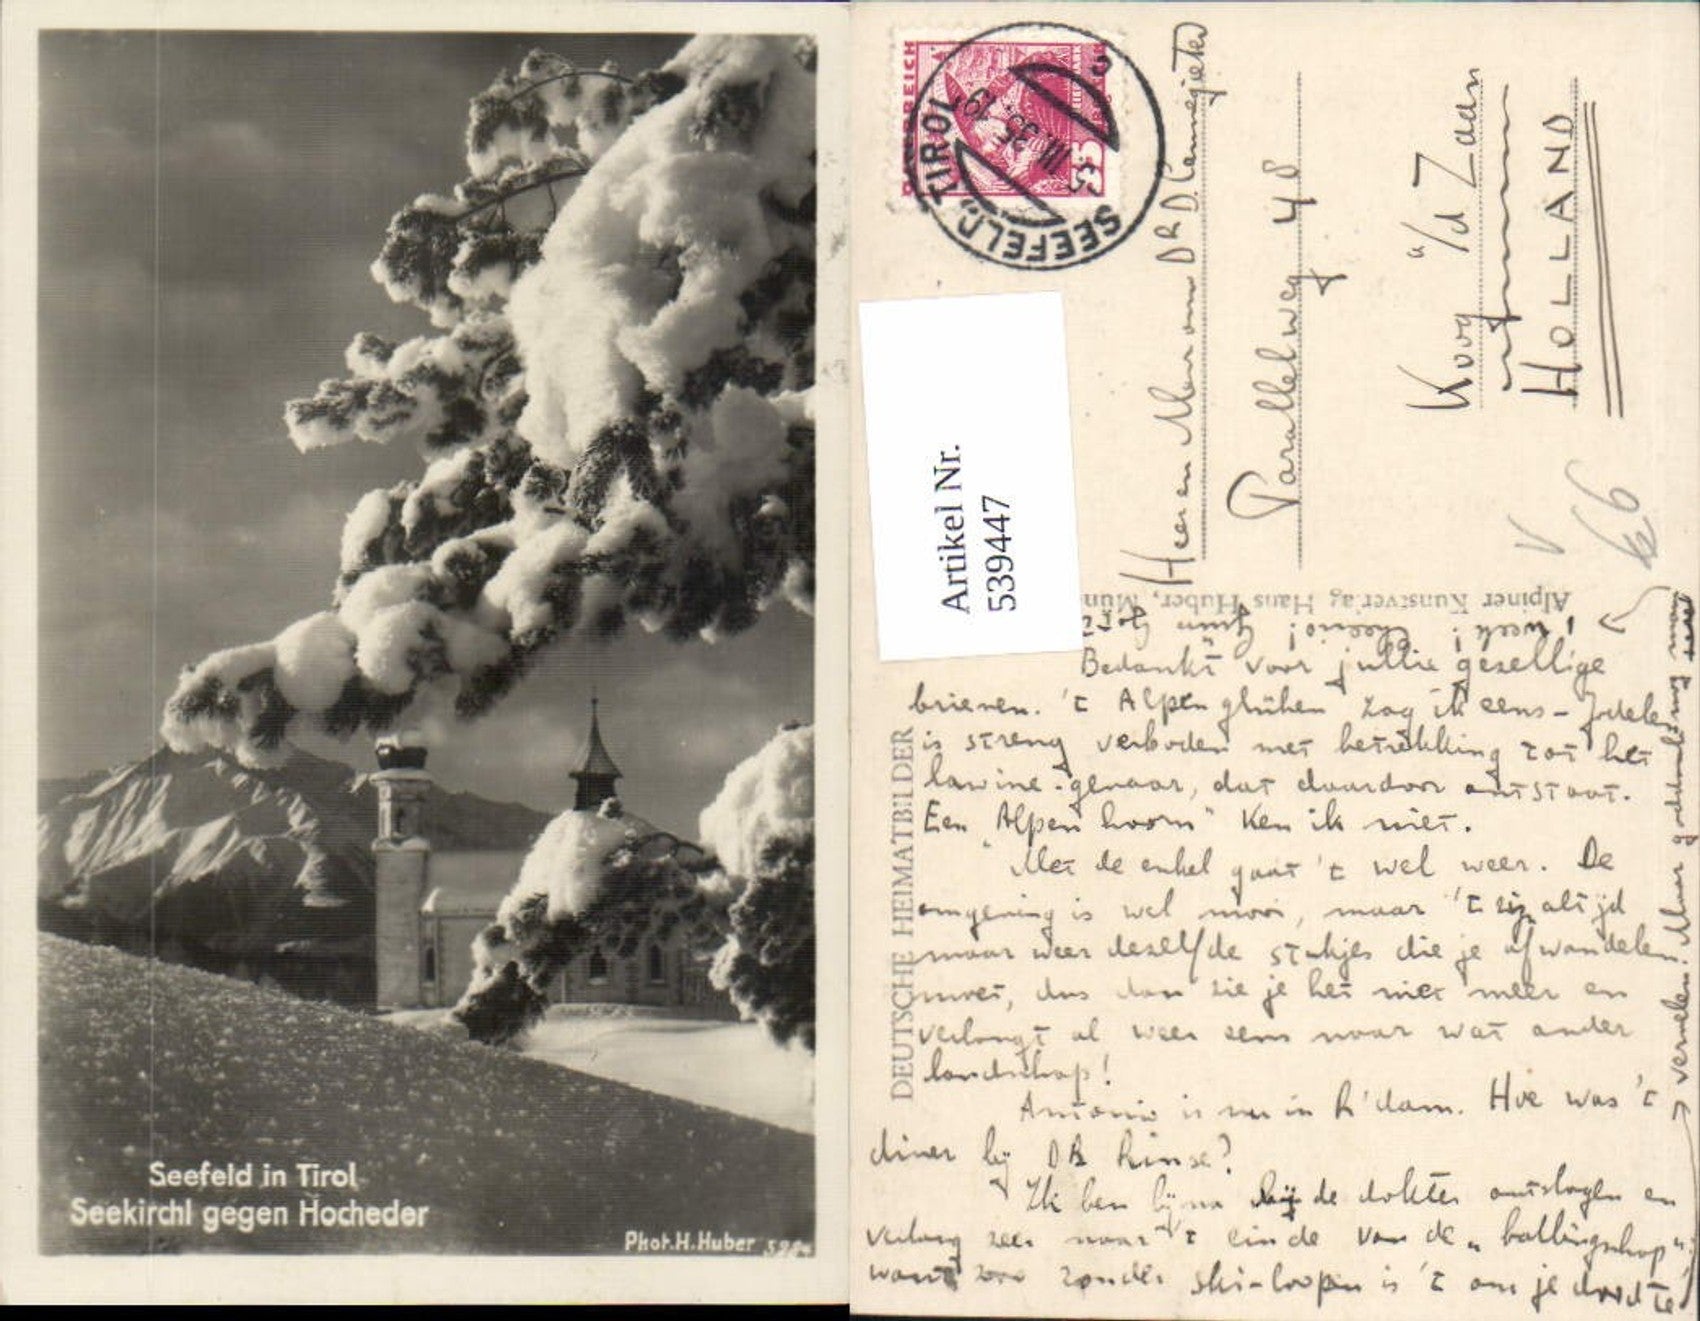 Seefeld in Tirol
Seekirchl gegen Hocheder
Phot. H. Huber
ÖSTERREICH
35
SEEFELD, TIROL
III. 35. 19
Artikel Nr.
539447
Parallelweg 48
Koog a/d Zaan
HOLLAND
V
Alpiner Kunstverlag Hans Huber, Mün
DEUTSCHE HEIMATBILDER
Bedankt voor jullie gezellige
brieven. 't Alpenglühen zag ik eens - Jodelen
is streng verboden met betrekking tot het
lawine-gevaar, dat daardoor ontstaat.
Een "Alpenhoorn" ken ik niet.
Met de enkel gaat 't wel weer. De
omgeving is wel mooi, maar 't zijn altijd
maar weer dezelfde stukjes die je afwandelen
moet, dus dan zie je het niet meer en
verlangt al weer eens naar wat ander
landschap!
Antonie is nu in R'dam. Hoe was 't
diner bij DR Rinse?
Ik ben bijna bij de dokter ontslagen en
verlang zeer naar 't einde van de "ballingschap",
want zonder ski-loopen is 't om je dood te
vervelen. Maar
1 week! Cheerio!